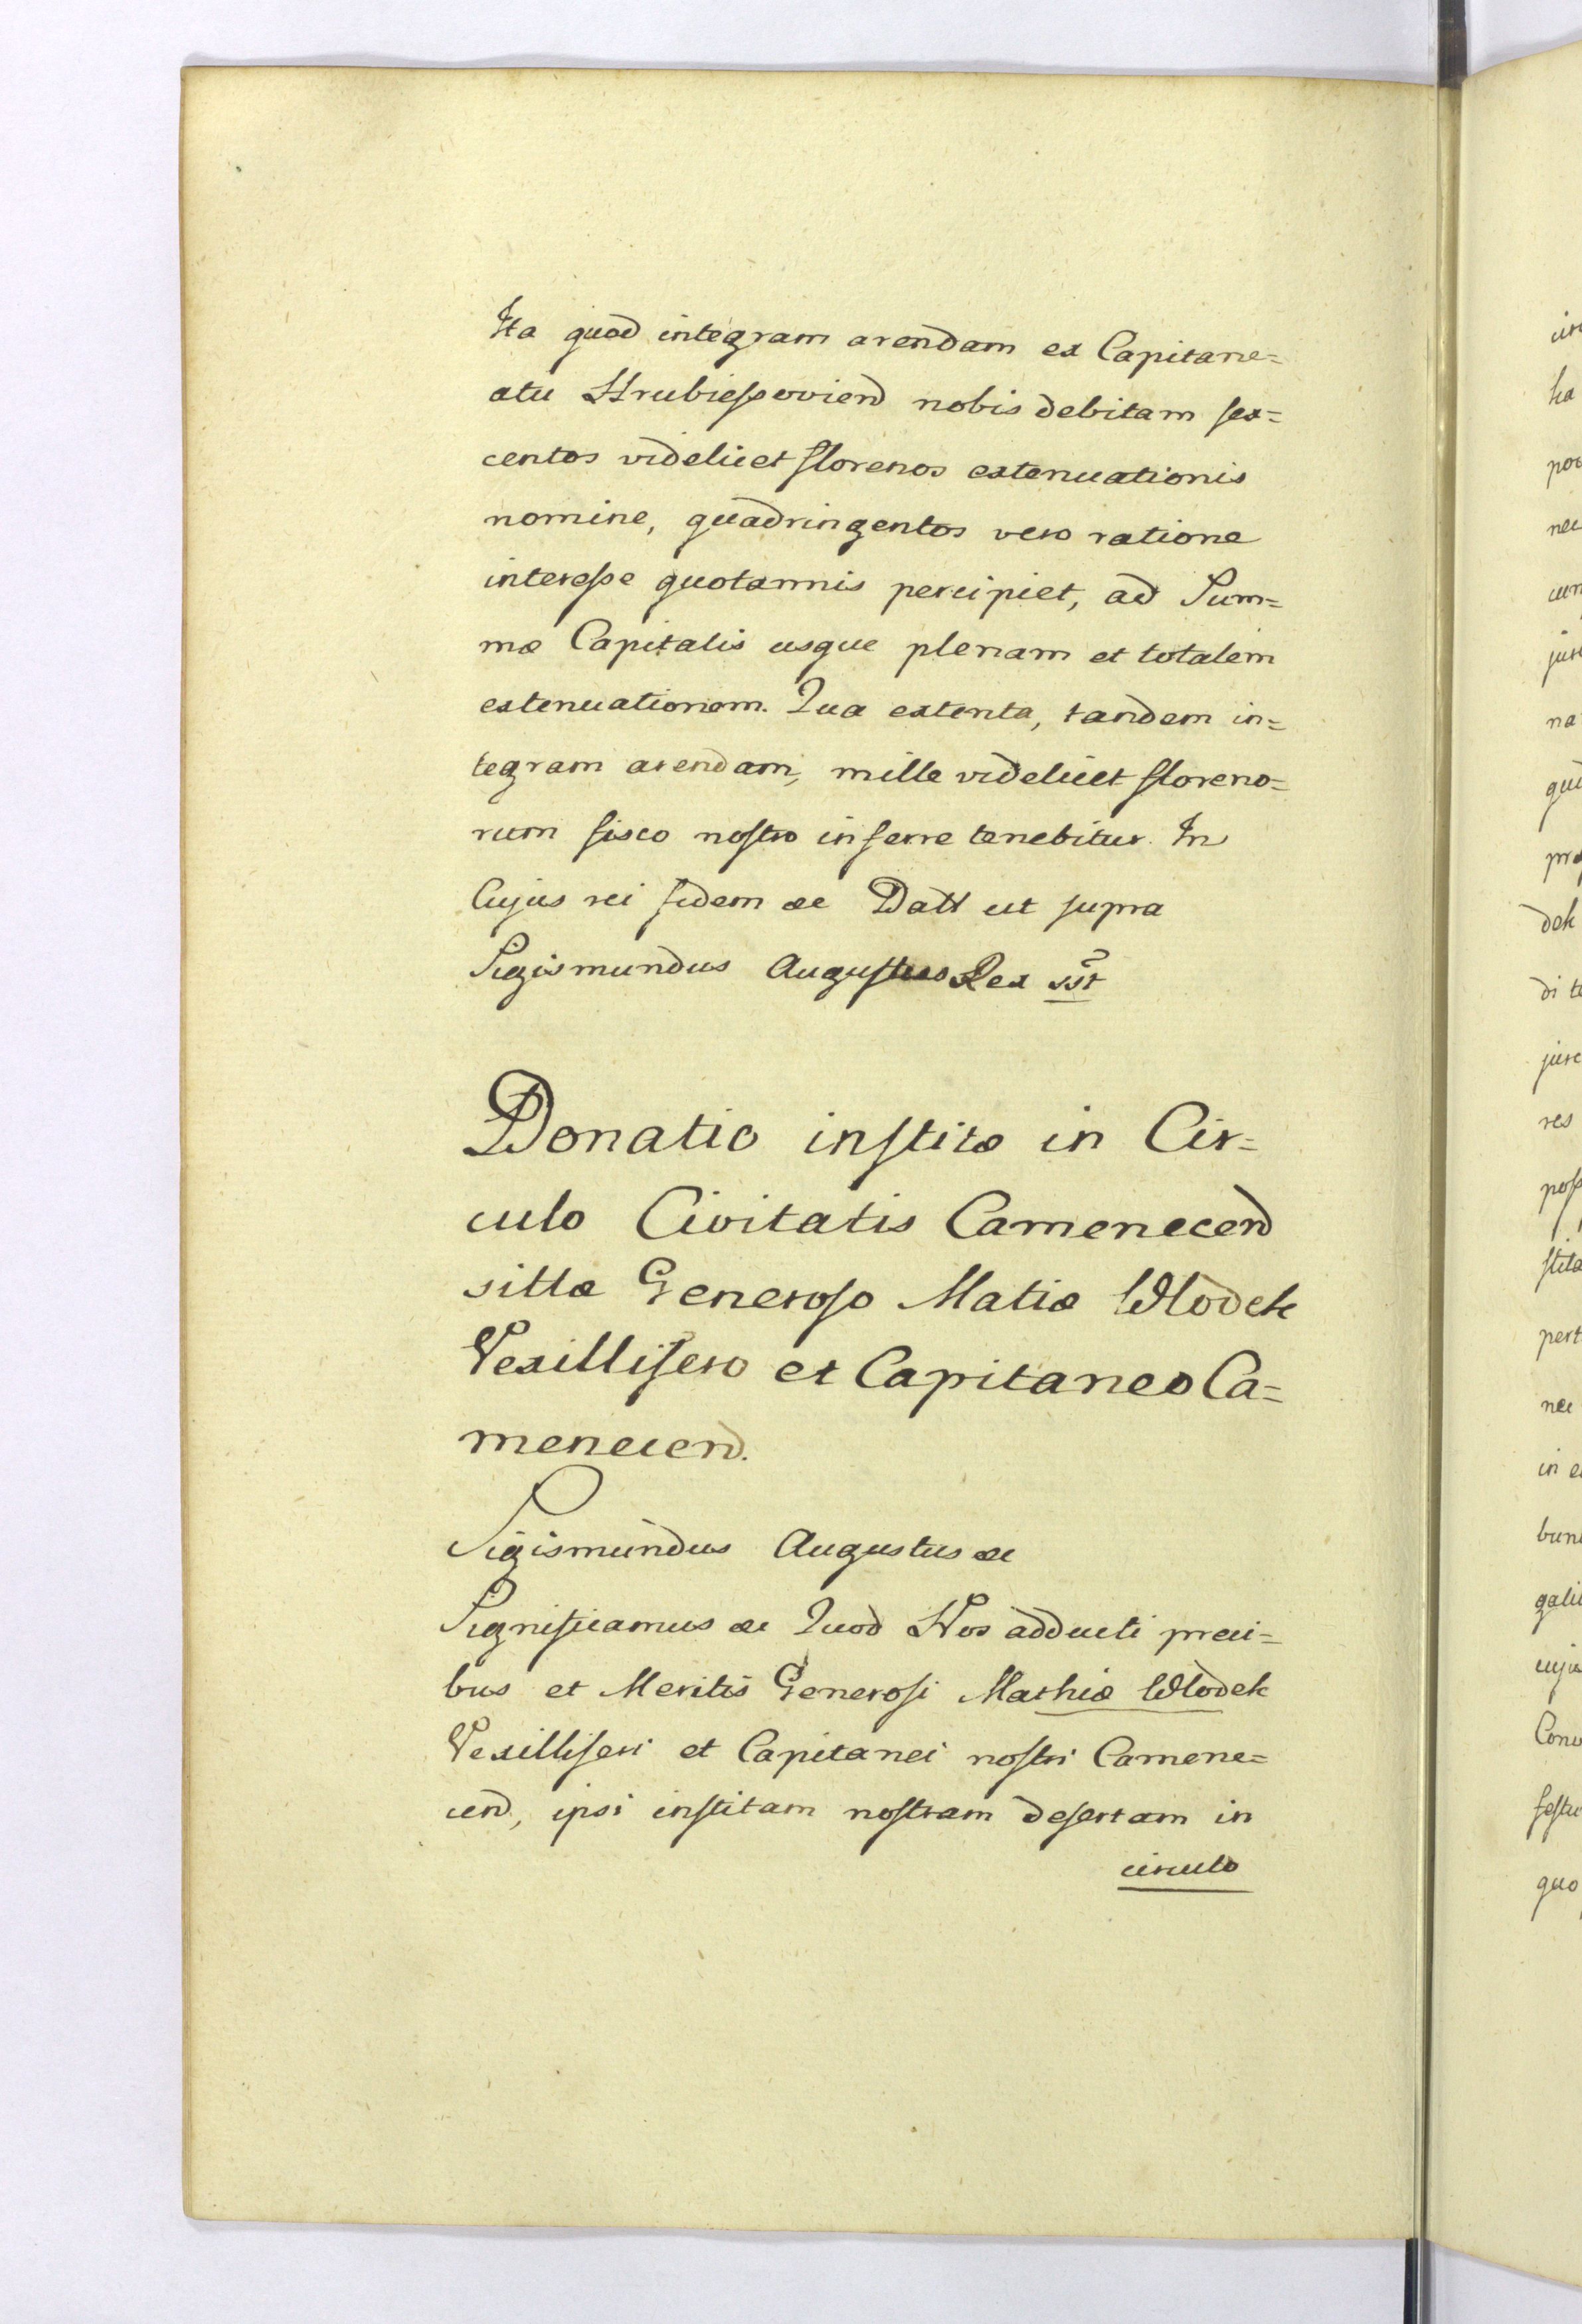 Ita quod integram arendam ex Capitane=
atu Hrubieſzoviend nobis debitam ſex=
centos videlicet florenos extenuationis
nomine, quadringentos vero ratione
intereſse quotannis percipiet, ad Sum=
mæ Capitalis usque plenam et totalem
extenuationem. Qua extenta, tandem in=
tegram arendam, mille videlicet floreno=
rum fisco noſtro inferre tenebitur. In
Cujus rei fidem &c Datt ut supra
Sigismundus Auguſtus Rex sst
Donatio inſtitæ in Cir=
culo Civitatis Camenecend
sittæ Generoſo Matiæ Wlodek
Vexillifero et Capitaneo Ca=
menecend.
Sigismundus Augustus &c
Significamus &c Quod Nos adducti preci=
bus et Meritis Generoſi Mathiæ Wlodek
Vexilliferi et Capitanei noſtri Camene=
cend, ipsi inſtitam noſtram deſertam in
circulo